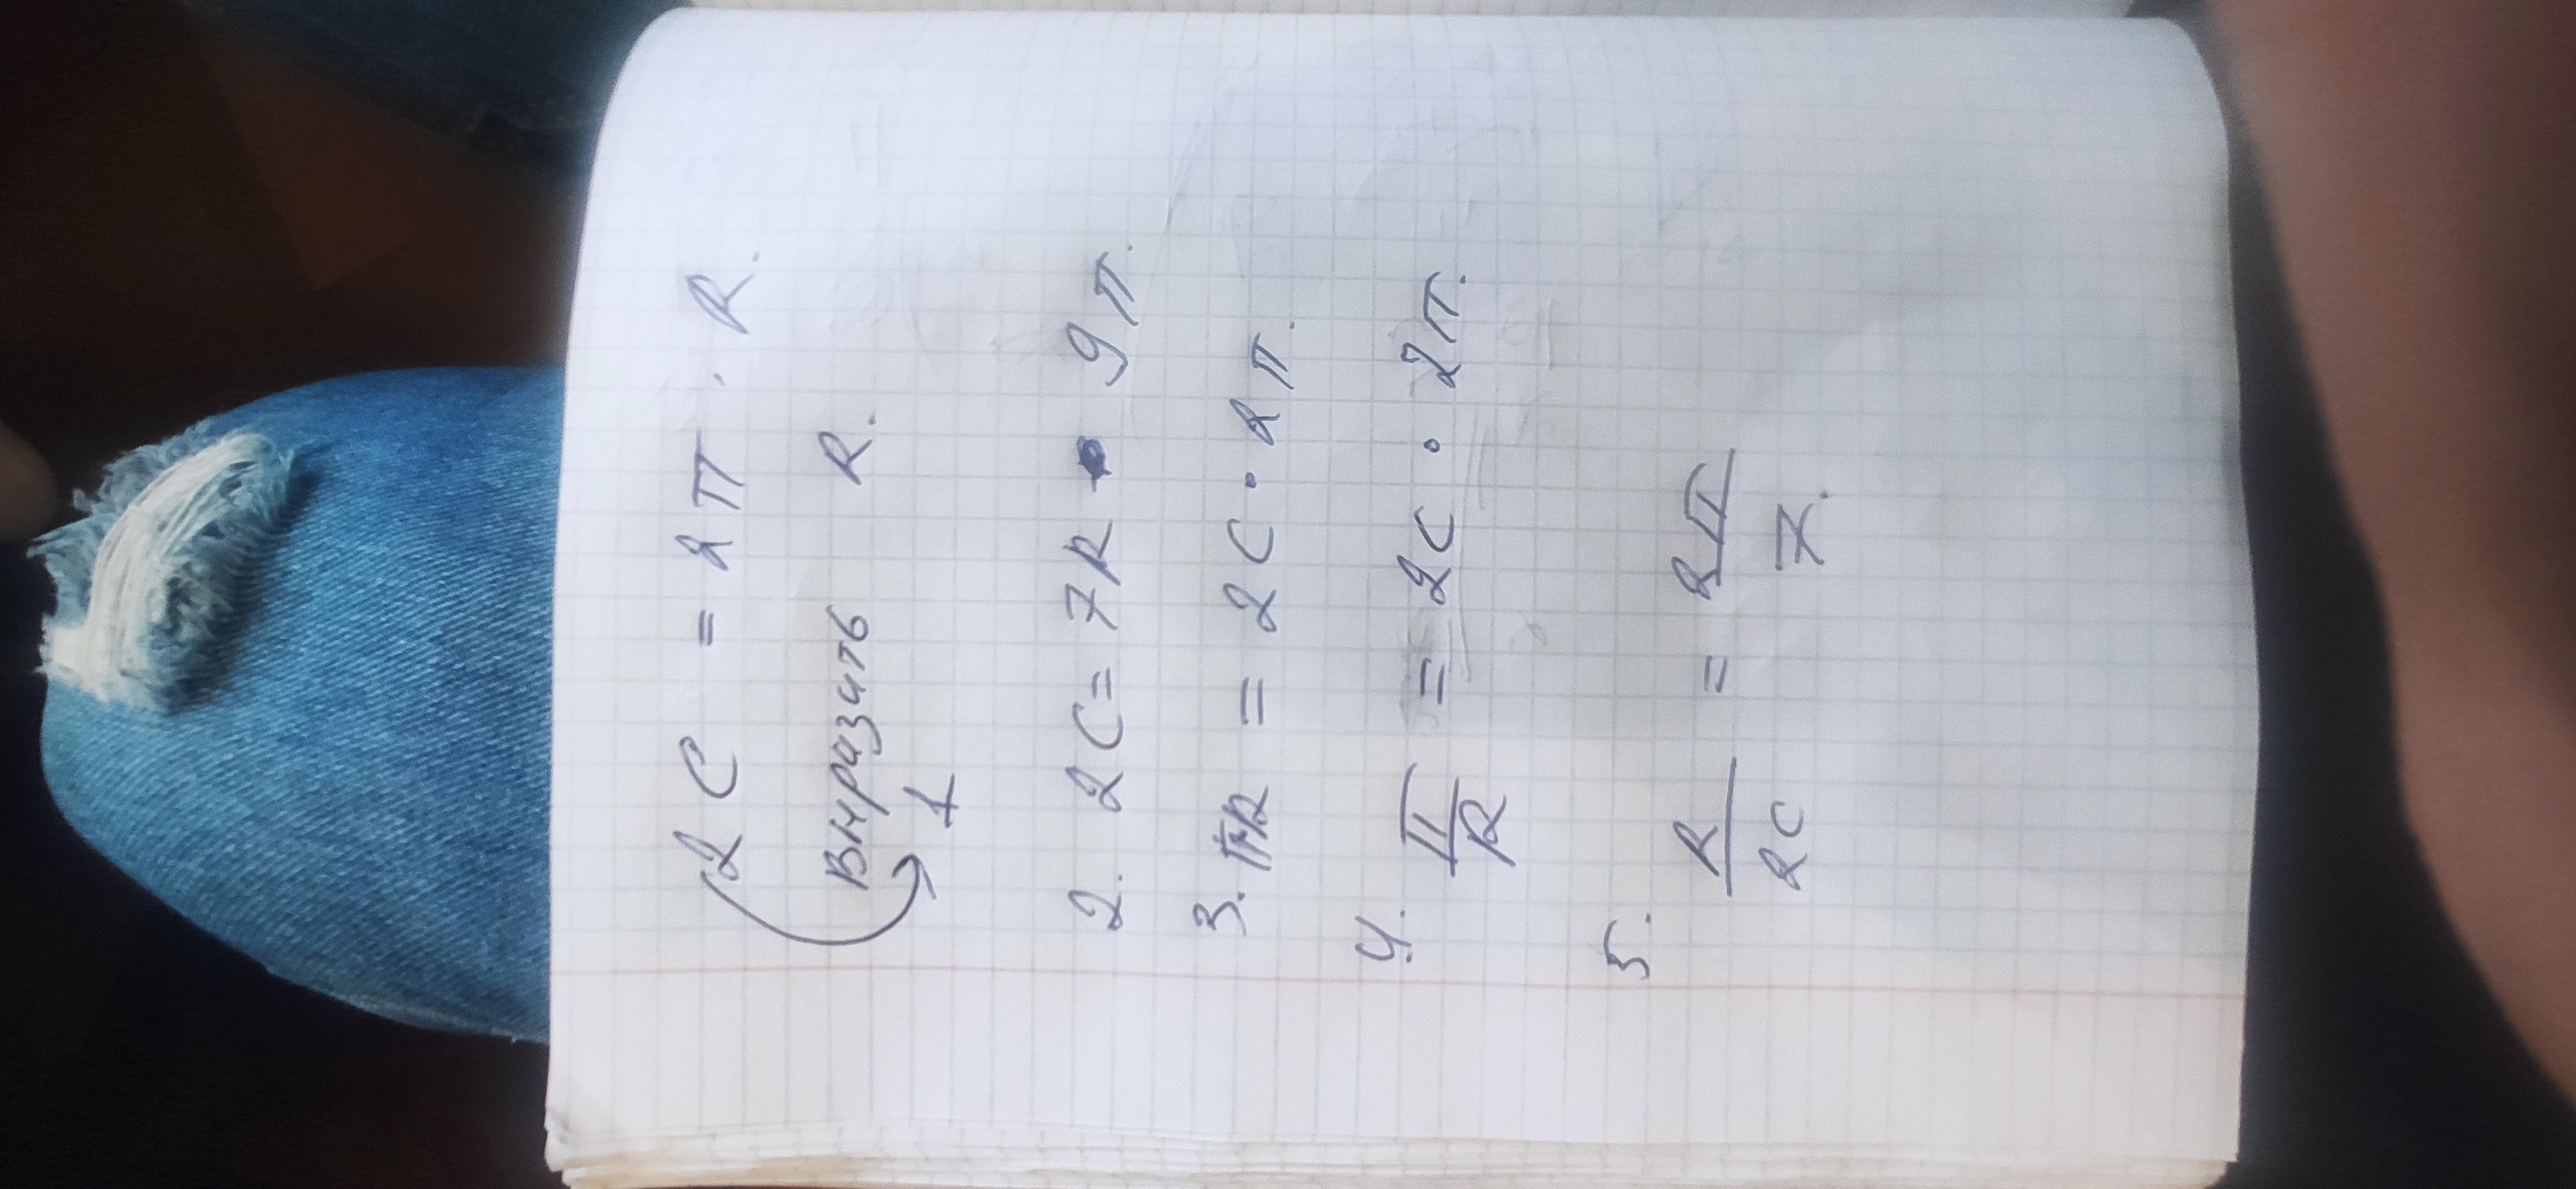 2C = 2π · R.
Выразить R.
1
2. 2C = 7R · 9π.
3. πR = 2C · 2π.
4. π/R = 2C · 2π.
5. R/2C = 2π/7.